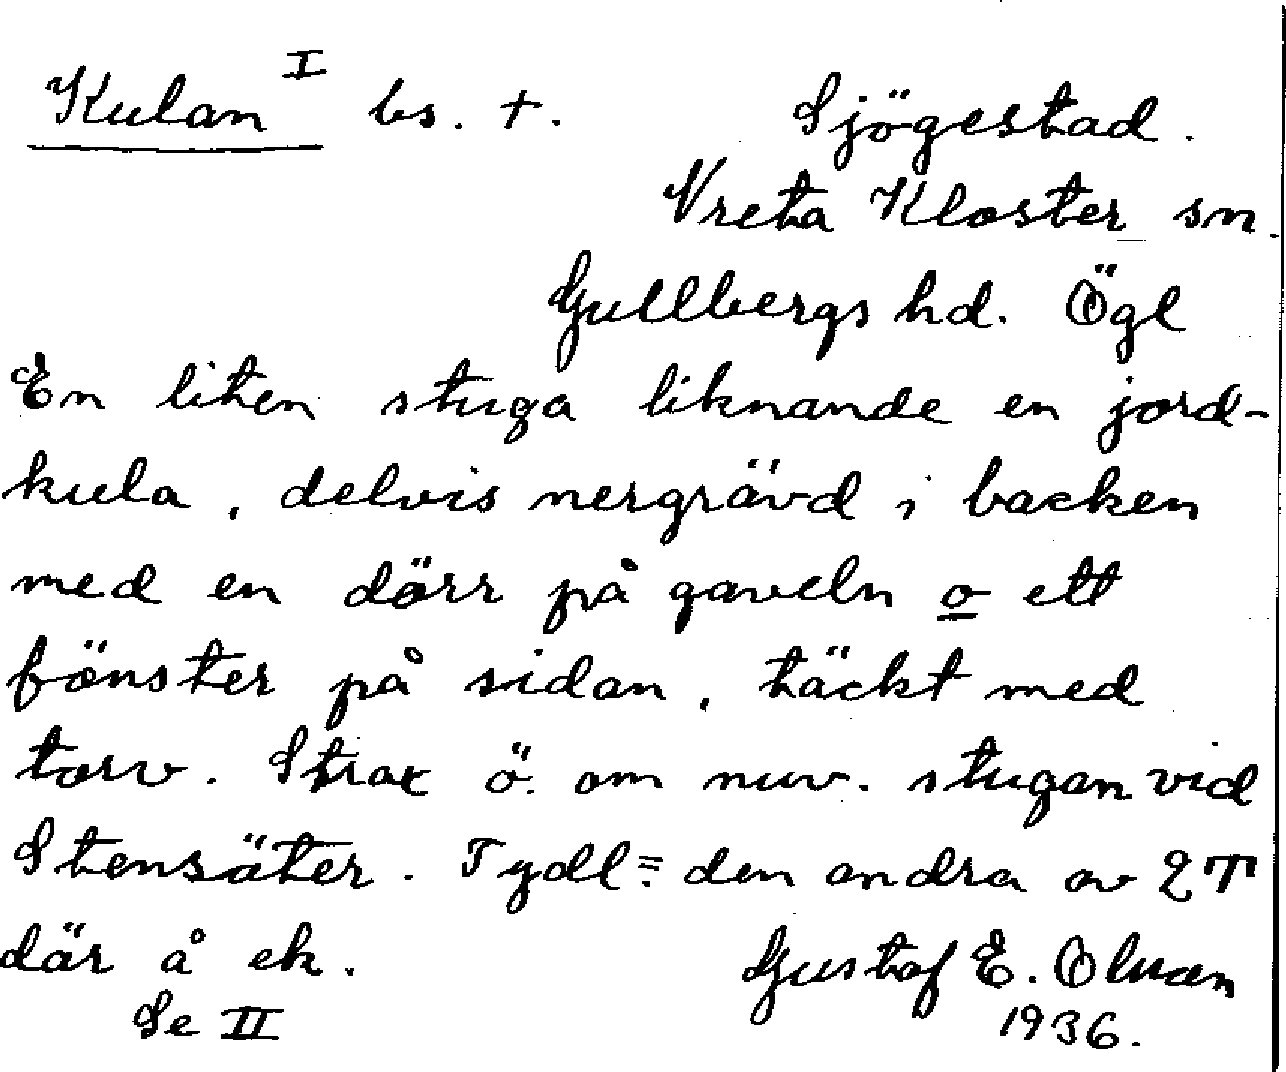 Kulan I bs. +. Sjögestad.
Vreta Kloster sn.
Gullbergs hd. Ögl
En liten stuga liknande en jord-
kula, delvis nergrävd i backen
med en dörr på gaveln o ett
fönster på sidan, täckt med
torv. Strax ö. om nuv. stugan vid
Stensäter. Tydl. = den andra av 2 T
där å ek. Gustaf E. Olsson
Se II 1936.